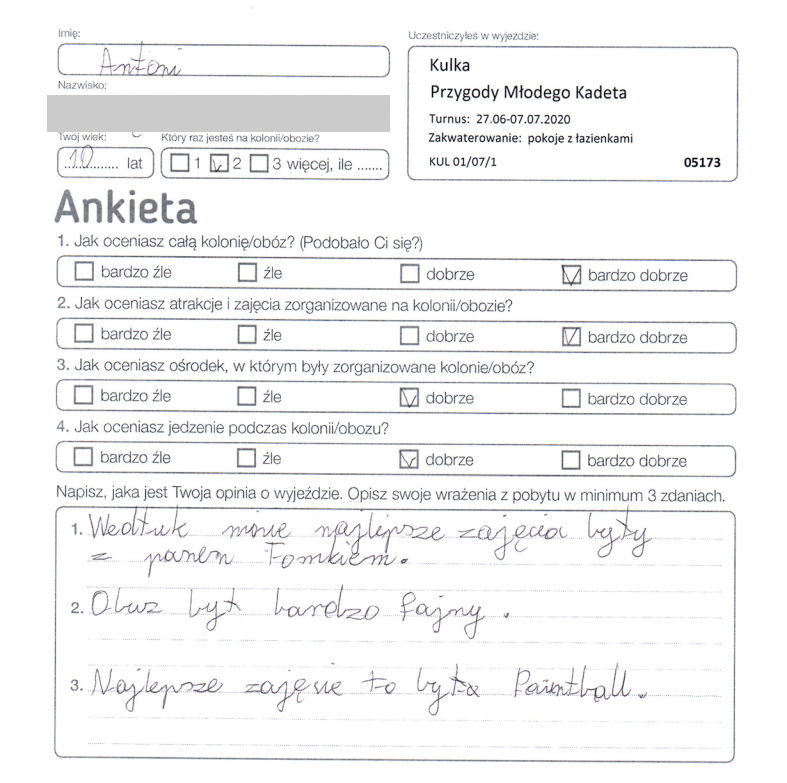 Imię:
Antoni
Nazwisko:
Twój wiek:
Który raz jesteś na kolonii/obozie?
10 lat
1 2 3 więcej, ile .......
Uczestniczyłeś w wyjeździe:
Kulka
Przygody Młodego Kadeta
Turnus: 27.06-07.07.2020
Zakwaterowanie: pokoje z łazienkami
KUL 01/07/1 05173
Ankieta
1. Jak oceniasz całą kolonię/obóz? (Podobało Ci się?)
bardzo źle źle dobrze bardzo dobrze
2. Jak oceniasz atrakcje i zajęcia zorganizowane na kolonii/obozie?
bardzo źle źle dobrze bardzo dobrze
3. Jak oceniasz ośrodek, w którym były zorganizowane kolonie/obóz?
bardzo źle źle dobrze bardzo dobrze
4. Jak oceniasz jedzenie podczas kolonii/obozu?
bardzo źle źle dobrze bardzo dobrze
Napisz, jaka jest Twoja opinia o wyjeździe. Opisz swoje wrażenia z pobytu w minimum 3 zdaniach.
1. Wedłuk mnie najlepsze zajęcia były
z panem Tomkiem.
2. Obuz był bardzo fajny.
3. Najlepsze zajęcie to była Paintball.